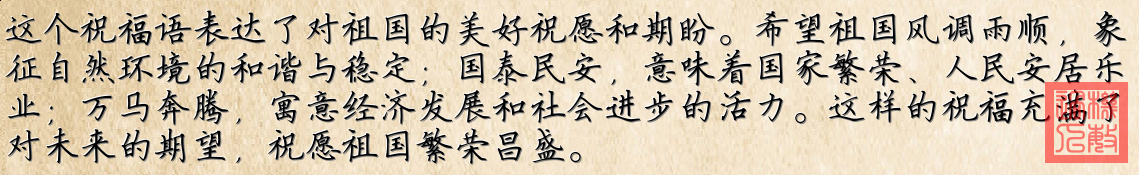 这个祝福语表达了对祖国的美好祝愿和期盼。希望祖国风调雨顺，象
征自然环境的和谐与稳定；国泰民安，意味着国家繁荣、人民安居乐
业；万马奔腾，寓意经济发展和社会进步的活力。这样的祝福充满了
对未来的期望，祝愿祖国繁荣昌盛。